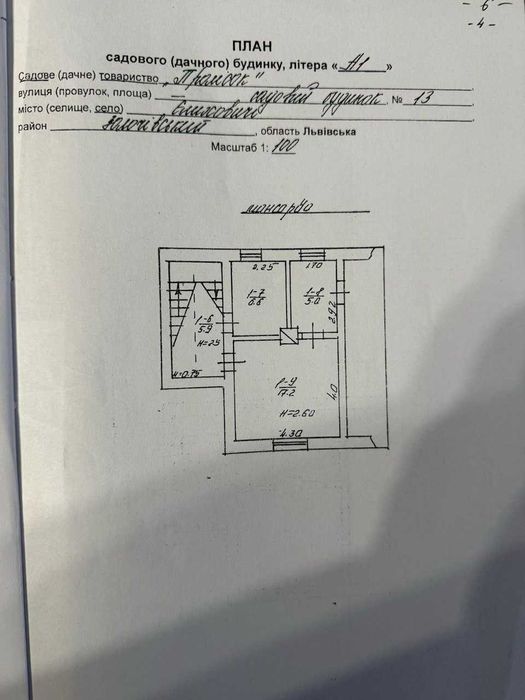 - 6 -
- 4 -
ПЛАН
садового (дачного) будинку, літера « А1 »
Садове (дачне) товариство „Промбок"
вулиця (провулок, площа) — , садовий будинок, № 13
місто (селище, село)
район Золочівський, область Львівська
Масштаб 1: 100
мансарда
2.25 1.70
1-7 1-8
6.6 5.0
2.92
1-6
5.9
H=2.5
H=0.75
1-9
17.2
4.0
H=2.60
4.30